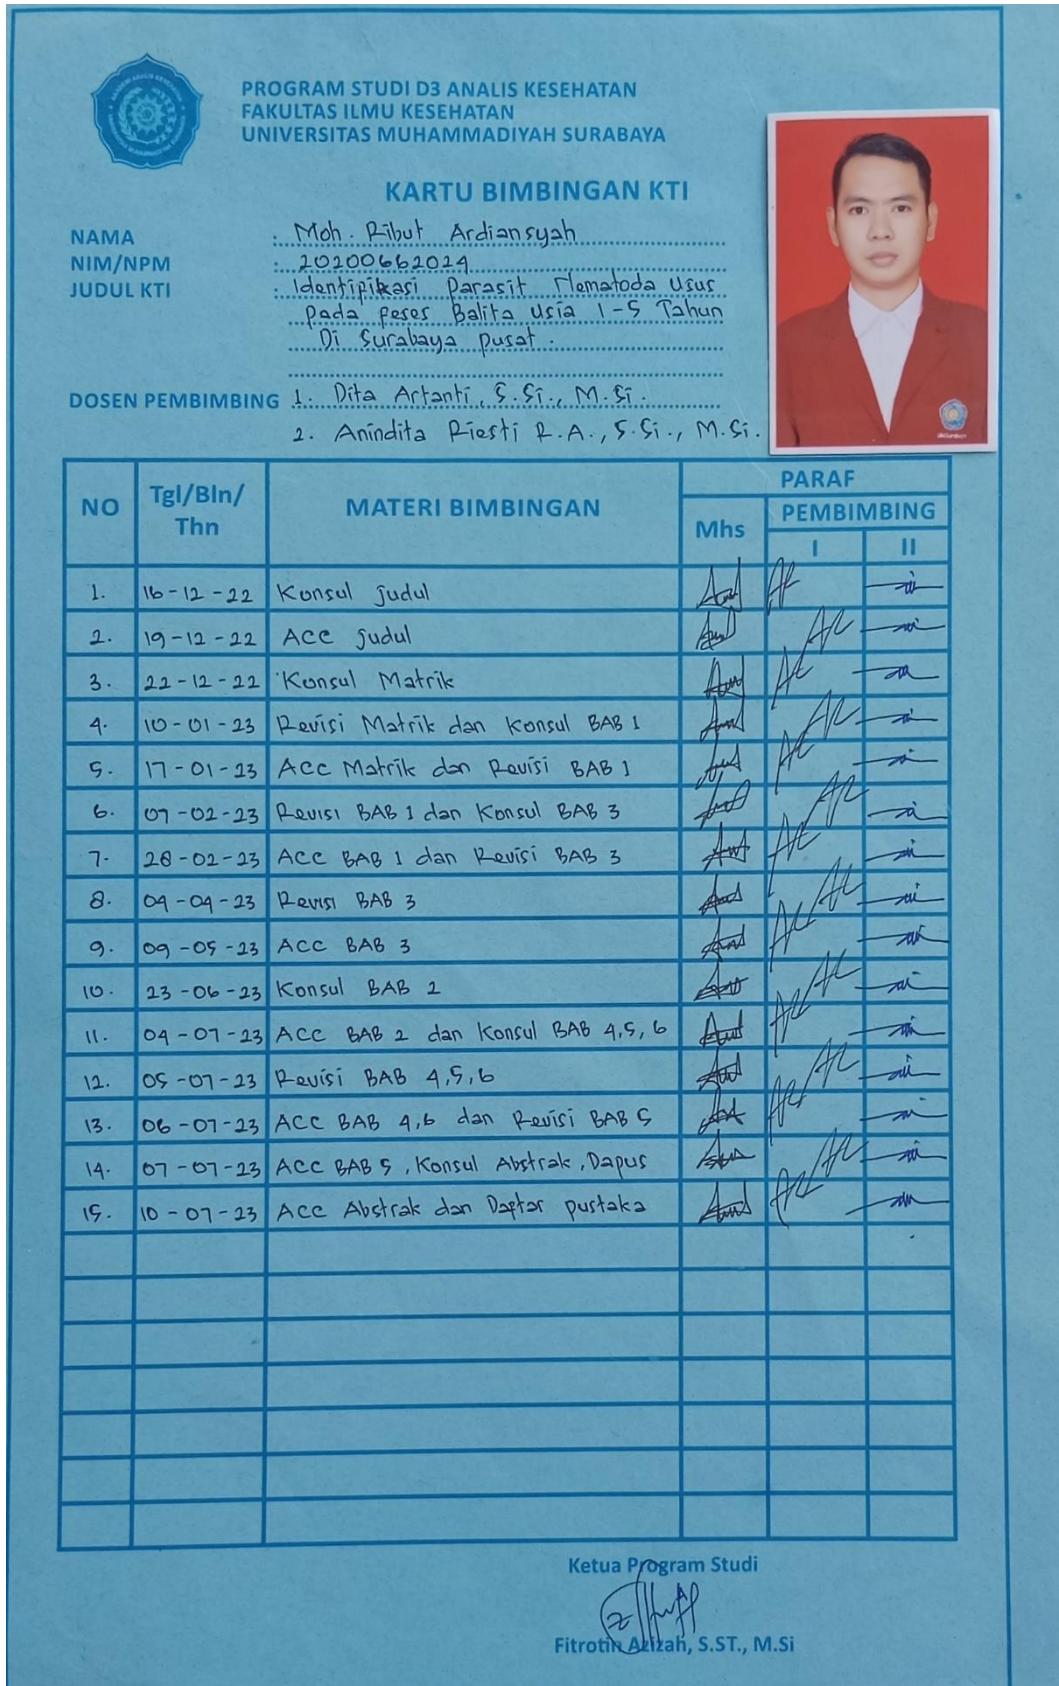 PROGRAM STUDI D3 ANALIS KESEHATAN
FAKULTAS ILMU KESEHATAN
UNIVERSITAS MUHAMMADIYAH SURABAYA
KARTU BIMBINGAN KTI
NAMA : Moh. Ribut Ardiansyah
NIM/NPM : 20200662024
JUDUL KTI : Identifikasi Parasit Nematoda Usus
pada feses Balita usia 1-5 Tahun
Di Surabaya pusat.
DOSEN PEMBIMBING 1. Dita Artanti, S.Si., M.Si.
2. Anindita Riesti R.A., S.Si., M.Si.
NO Tgl/Bln/Thn MATERI BIMBINGAN PARAF
Mhs PEMBIMBING
I II
1. 16-12-22 Konsul judul
2. 19-12-22 ACC judul
3. 22-12-22 Konsul Matrik
4. 10-01-23 Revisi Matrik dan Konsul BAB 1
5. 17-01-23 ACC Matrik dan Revisi BAB 1
6. 07-02-23 Revisi BAB 1 dan Konsul BAB 3
7. 28-02-23 ACC BAB 1 dan Revisi BAB 3
8. 04-04-23 Revisi BAB 3
9. 09-05-23 ACC BAB 3
10. 23-06-23 Konsul BAB 2
11. 04-07-23 ACC BAB 2 dan Konsul BAB 4,5,6
12. 05-07-23 Revisi BAB 4,5,6
13. 06-07-23 ACC BAB 4,6 dan Revisi BAB 5
14. 07-07-23 ACC BAB 5, Konsul Abstrak, Dapus
15. 10-07-23 ACC Abstrak dan Daftar pustaka
Ketua Program Studi
Fitrotin Azizah, S.ST., M.Si